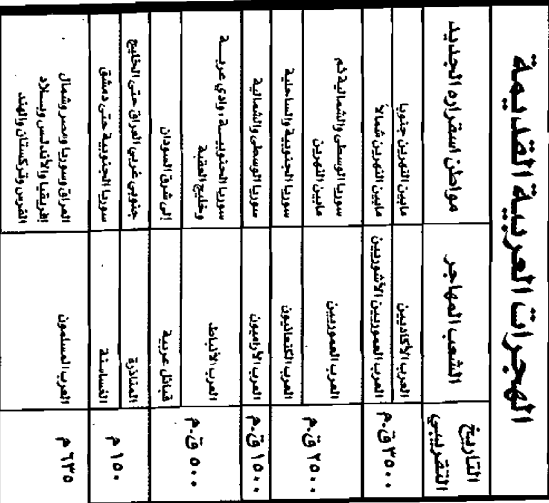 الهجرات العربية القديمة
التاريخ التقريبي
الشعب المهاجر
مواطن استقراره الجديد
٣٥٠٠ ق.م
العرب الأكاديين
مابين النهرين جنوبا
العرب العموريين الأشوريين
مابين النهرين شمالاً
٢٥٠٠ ق.م
العرب العموريين
سوريا الوسطى والشمالية ثم
مابين النهرين
العرب الكنعانيون
سوريا الجنوبية والساحلية
١٥٠٠ ق.م
العرب الآراميون
سوريا الوسطى والشمالية
٥٠٠ ق.م
العرب الأنباط
سوريا الجنوبيـة، وادي عربـة
وخليج العقبة
قبائل عربية
إلى شرق السودان
١٥٠ م
المناذرة
جنوبي غربي العراق حتى الخليج
الغساسنة
سوريا الجنوبية حتى دمشق
٦٣٥ م
العرب المسلمون
العراق وسوريا ومصر وشمال
افريقيا والأندلس وبـلاد
الفرس وتركستان والهند